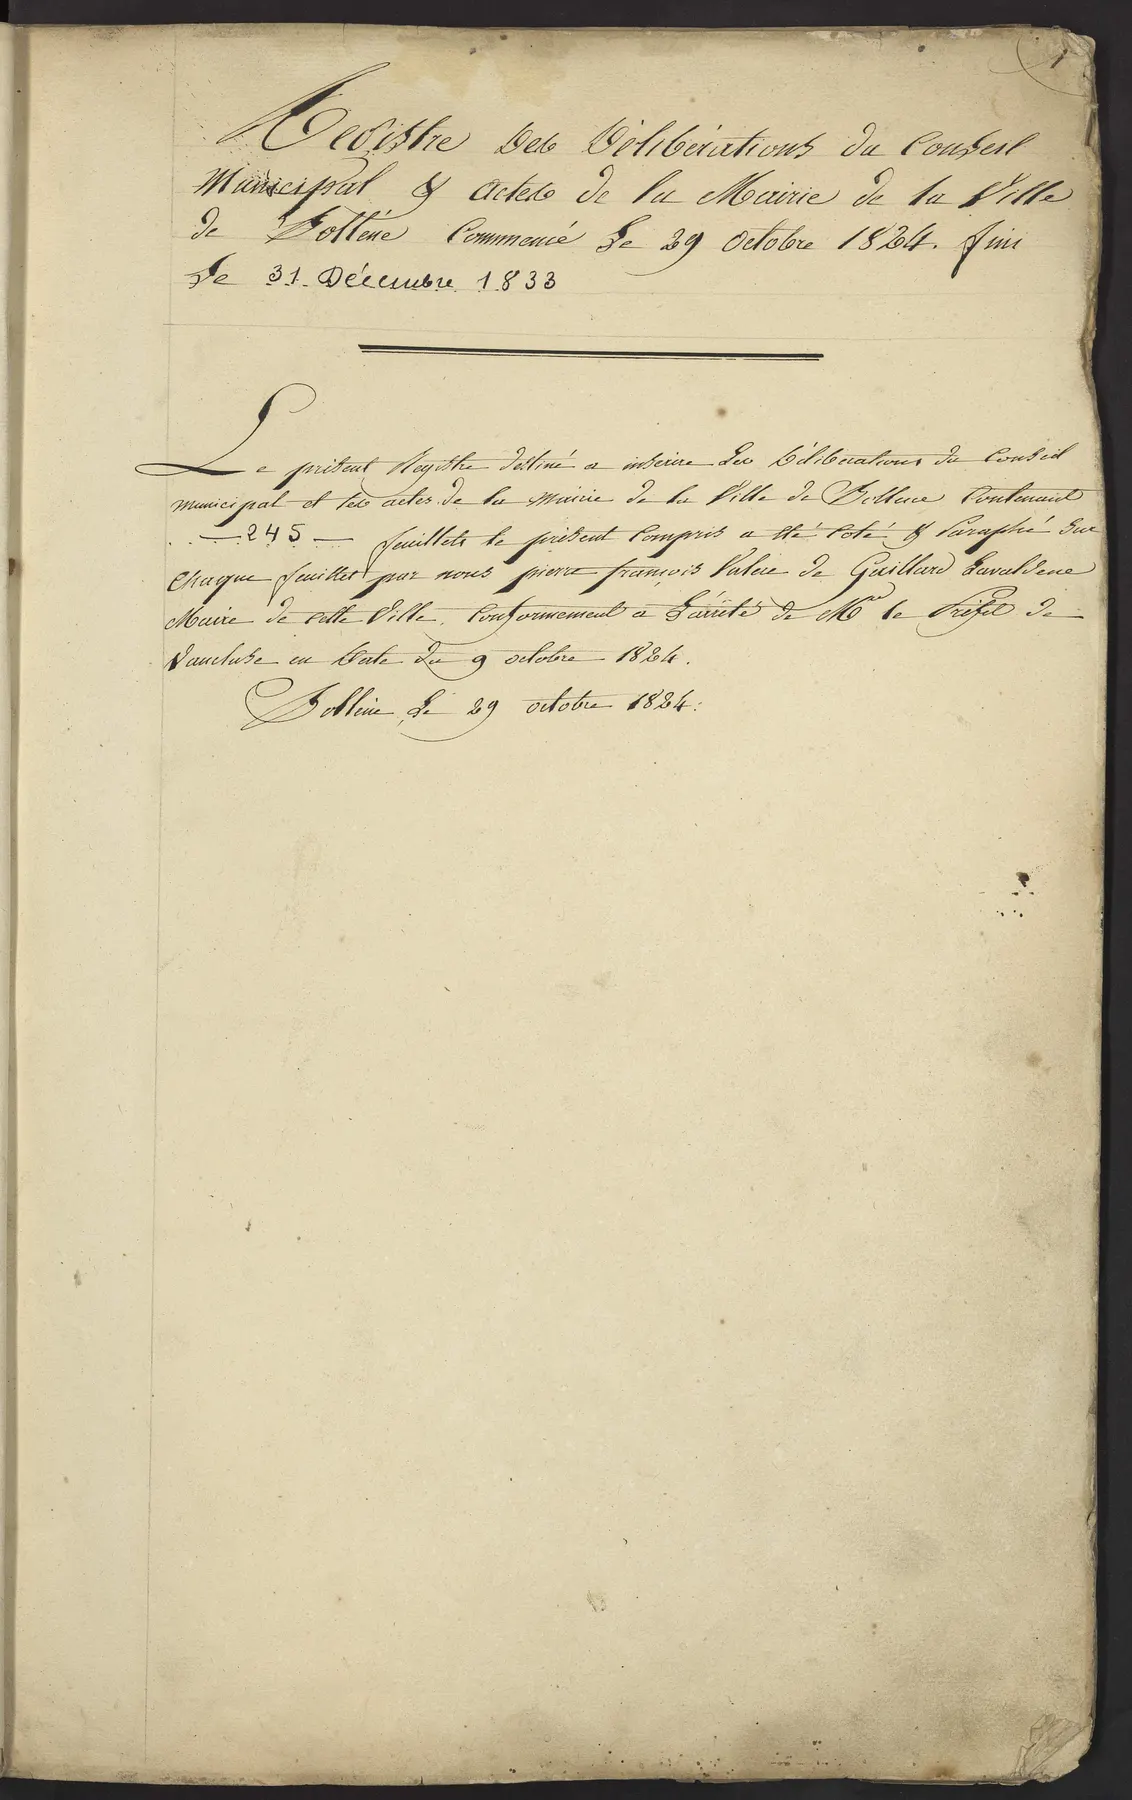 1
Registre des Délibérations du Conseil
Municipal & actes de la Mairie de la Ville
de Bollène Commencé Le 29 octobre 1824. fini
Le 31 Décembre 1833
Le présent Registre destiné a inscrire Les Délibérations du Conseil
municipal et les actes de la mairie de la Ville de Bollene Contenant
245 feuillets le présent compris a été Coté & Paraphé Sur
Chaque feuillet par nous pierre françois Valere de Gaillard Lavaldene
Maire de cette Ville, Conformement a L'arrêté de Mr le Préfet de
Vaucluse en Date du 9 octobre 1824.
Bollène, Le 29 octobre 1824.